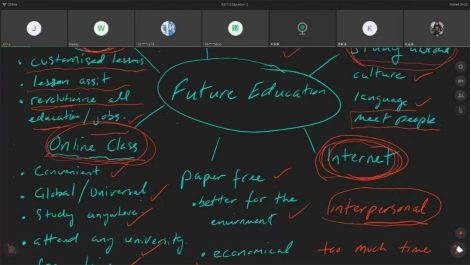 J
W
K
• customised lessons
• lesson assit
• revolutionize all
education/jobs.
Future Education
study abroad
culture
language
meet people
Online Class
• Convenient
• Global/Universal
• Study anywhere
• attend any university.
paper free
• better for the
enviroment
• economical
Internet
interpersonal
too much time